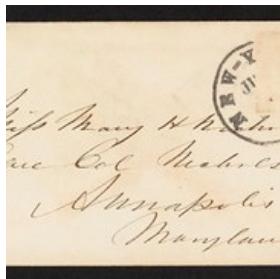 NEW-Y
JU
Miss Mary H Nichols
Care Col Nichols
Annapolis
Marylan